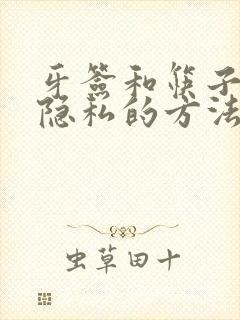 牙签和筷子
隐私的方法
虫草田十